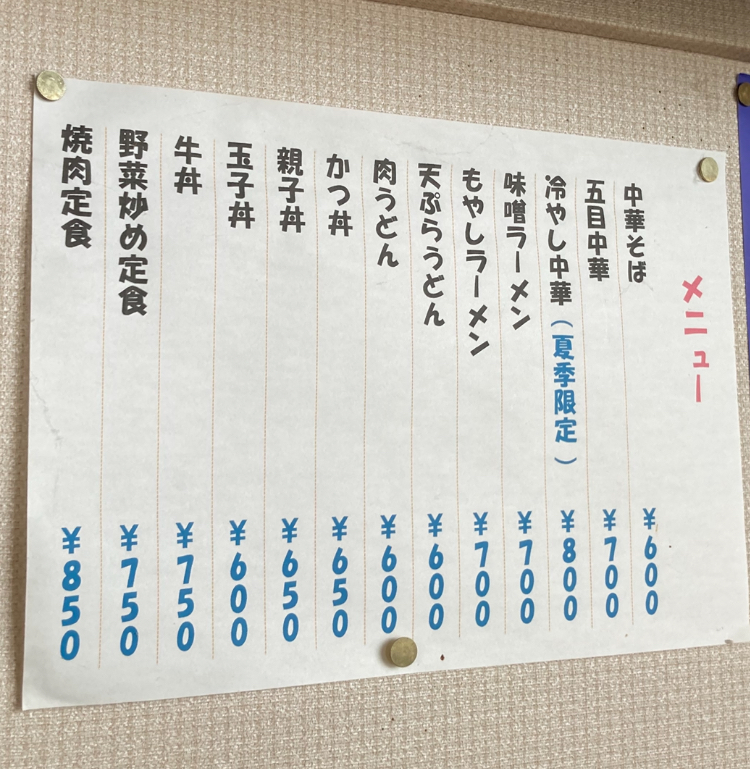 メニュー
中華そば ¥600
五目中華 ¥700
冷やし中華(夏季限定) ¥800
味噌ラーメン ¥700
もやしラーメン ¥700
天ぷらうどん ¥600
肉うどん ¥600
かつ丼 ¥650
親子丼 ¥650
玉子丼 ¥600
牛丼 ¥750
野菜炒め定食 ¥750
焼肉定食 ¥850